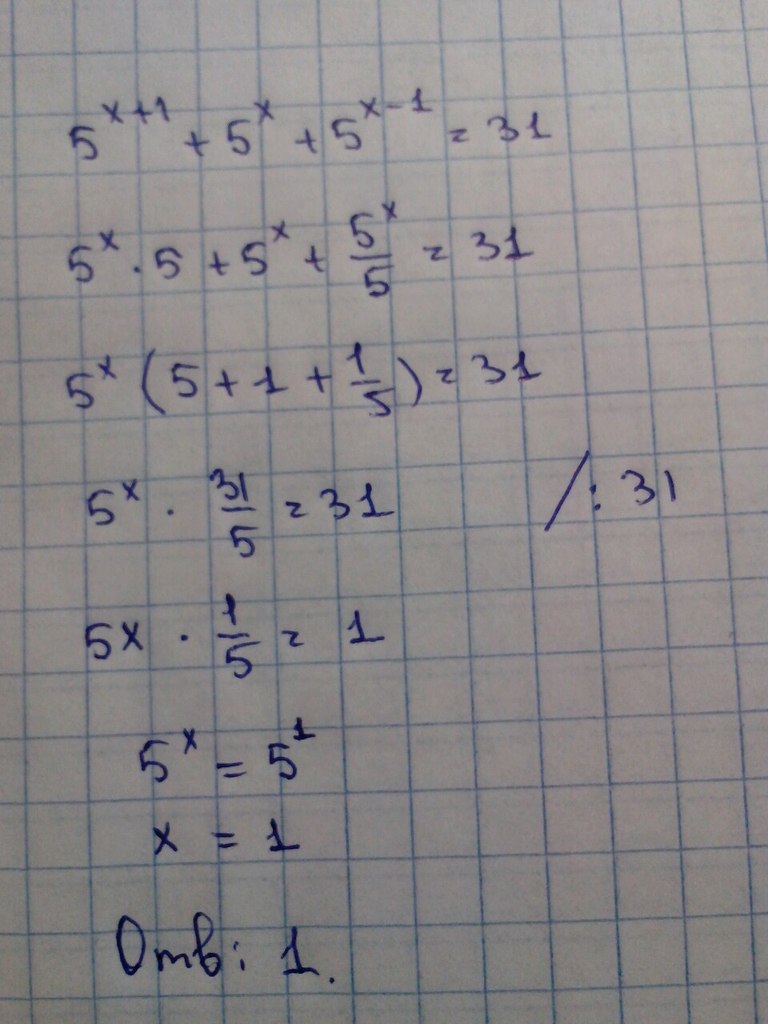 5^{x+1} + 5^x + 5^{x-1} = 31
5^x · 5 + 5^x + \frac{5^x}{5} = 31
5^x (5 + 1 + \frac{1}{5}) = 31
5^x · \frac{31}{5} = 31 /: 31
5x · \frac{1}{5} = 1
5^x = 5^1
x = 1
Отв: 1.